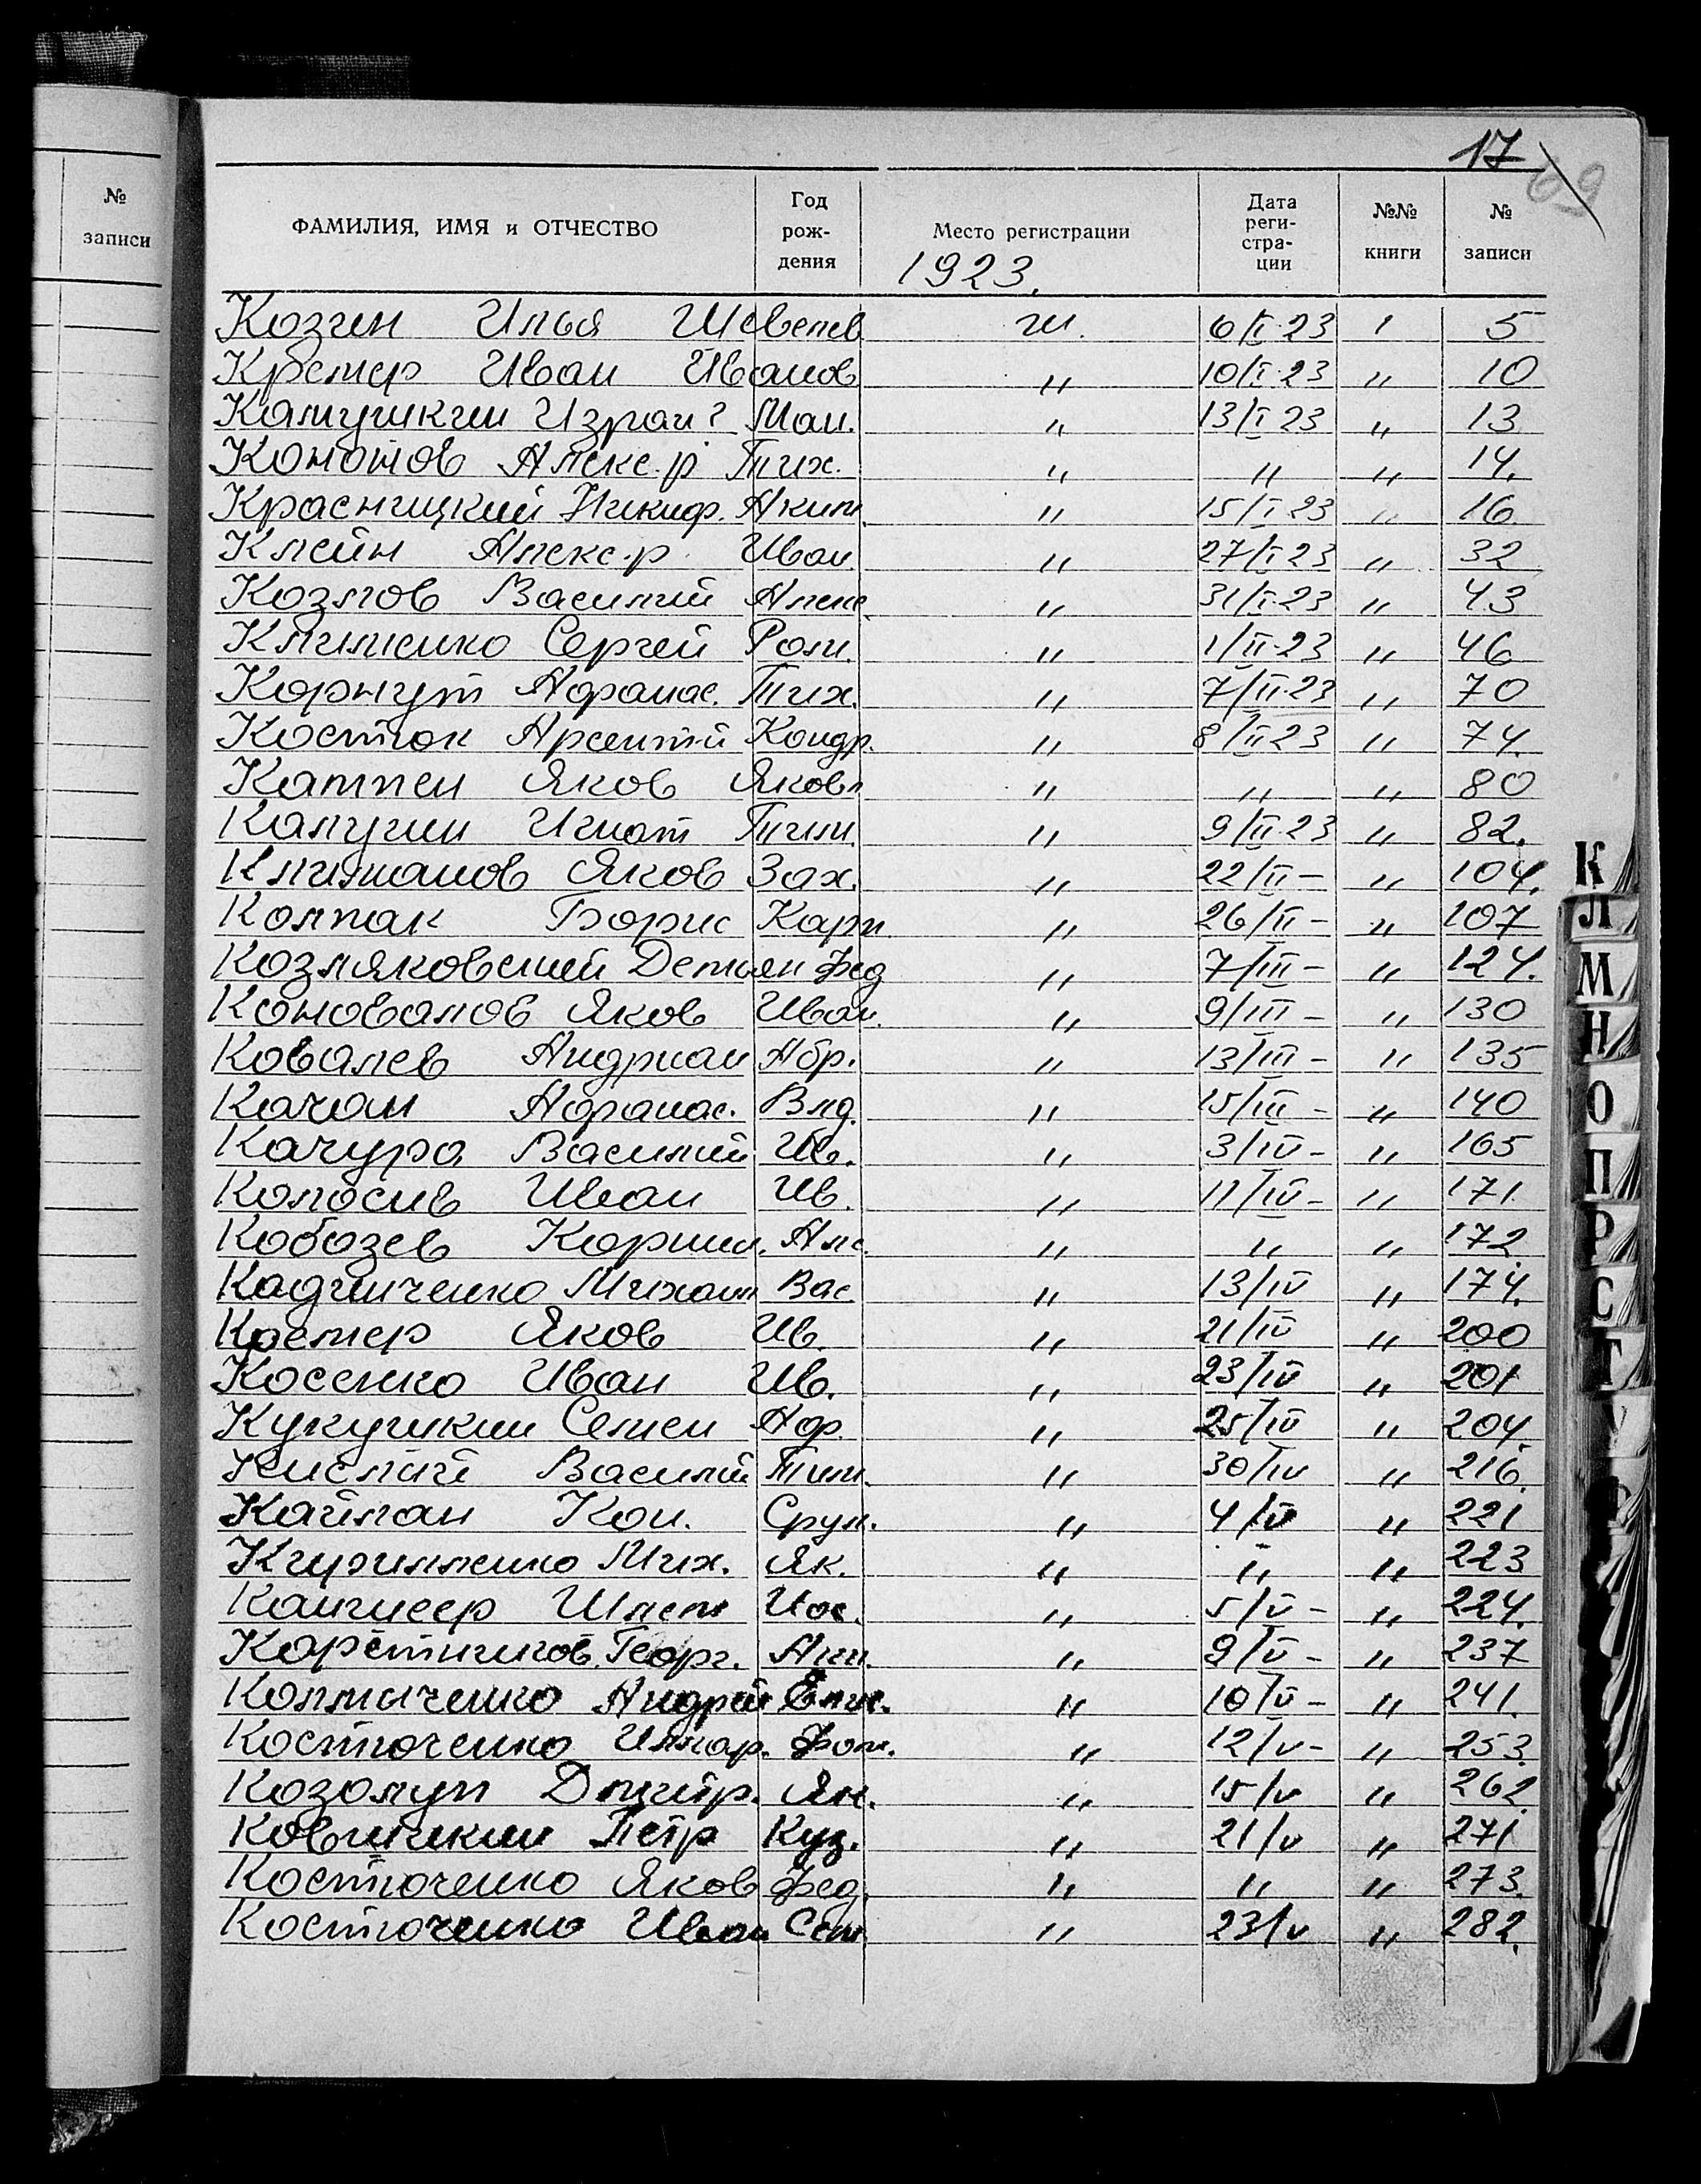 17
69
№ записи
ФАМИЛИЯ, ИМЯ и ОТЧЕСТВО Год рож- дения Место регистрации Дата реги- стра- ции №№ книги № записи
1923.
Козин Илья Шевелев Ш. 6/I-23 1 5
Кремер Иван Иванов " 10/I-23 " 10
Калмушкин Израи? Ман. " 13/I 23 " 13
Кононов Алекс.р Тих. " " " 14.
Красницкий Никиф. Яким. " 15/I 23 " 16
Клейн Алекс.р Иван " 27/I 23 " 32
Козлов Василий Алекс " 31/I-23 " 43
Клименко Сергей Ром. " 1/II-23 " 46
Корнут Афанас. Тих. " 7/II-23 " 70
Костюк Арсентий Кондр. " 8/II 23 " 74.
Каппен Яков Яковл " " " 80
Калугин Игнат Тим. " 9/II-23 " 82.
Климанов Яков Зах. " 22/II- " 104.
Колпак Борис Карп. " 26/II- " 107
Козляковский Демьян Фед " 7/III- " 124.
Коновалов Яков Иван. " 9/III- " 130
Ковалев Андриан Абр. " 13/III- " 135
Качан Афанас. Влд. " 15/III- " 140
Качура Василий Ив. " 3/IV- " 165
Колосив Иван Ив. " 11/IV- " 171
Кобозев Корнил. Алс. " " " 172
Кадинченко Михаил Вас " 13/IV " 174.
Кремер Яков Ив. " 21/IV " 200
Косенко Иван Ив. " 23/IV " 201
Кукушкин Семен Аф. " 25/IV " 204.
Кислий Василий Тим. " 30/IV " 216.
Кайман Кон. Срул. " 4/V " 221
Кириленко Мих. Як. " " " 223
Кангисер Шлема Иос. " 5/V- " 224.
Георг. " 9/V- " 237
Колмаченко Андрей " 10/V- " 241.
Костюченко Иллар. Фом. " 12/V- " 253.
Козолуп Дмитр. Ян. " 15/V " 262.
Ковшикин Петр Куз. " 21/V " 271
Костюченко Яков Фед. " " " 273.
Костюченко Иван Сем. " 23/V " 282.
К
Л
М
Н
О
П
Р
С
Т
У